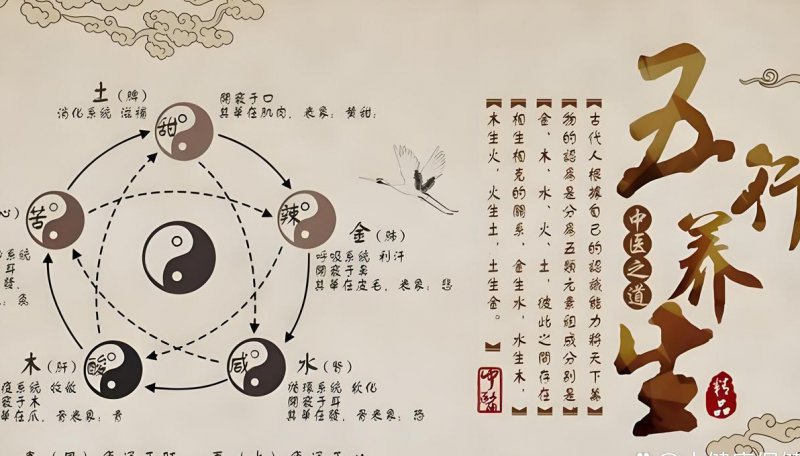 五行养生
中医之道
精品
古代人根據自己的認識能力將天下萬
物的認爲是分爲五類元素組成分别是
金、木、水、火、土，彼此之間存在
相生相克的關系，金生水，水生木，
木生火，火生土，土生金。
中醫
土（脾）
消化系統 滋補
開竅于口
其華在肌肉，表象：黄甜；
甜
苦
辣
金（肺）
呼吸系統 利汗
開竅于鼻
其華在皮毛，表象：悲
木（肝）
疫系統 收敛
竅于木
單在爪，骨表象：青
酸
咸
水（腎）
循環系統 軟化
開竅于耳
其華在發，骨表象：恐